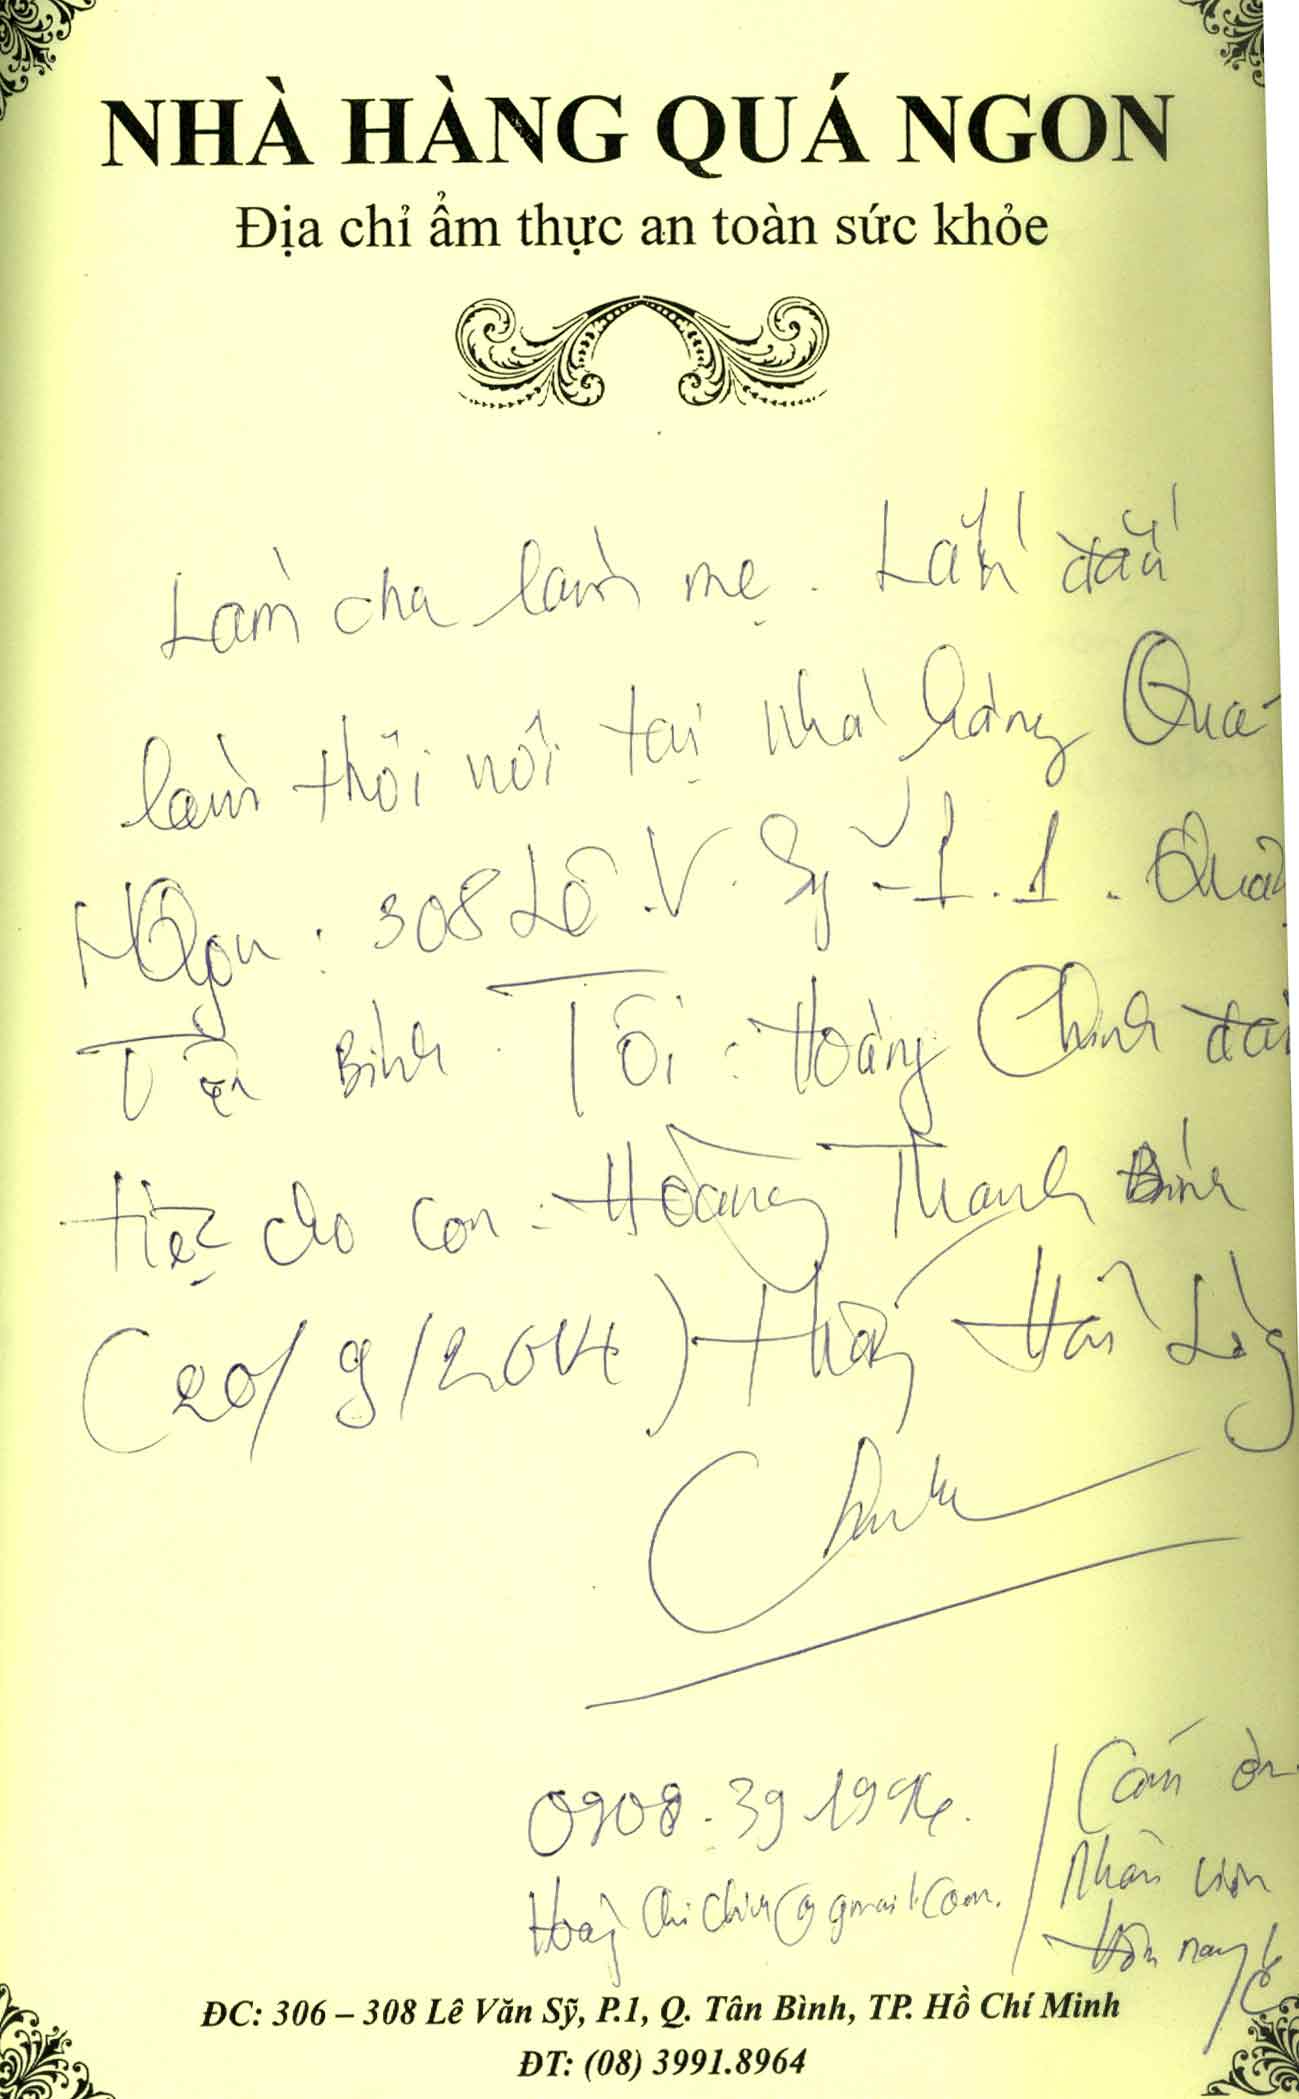 NHÀ HÀNG QUÁ NGON
Địa chỉ ẩm thực an toàn sức khỏe
Làm cha làm mẹ. Lần đầu
làm thôi nôi tại nhà hàng Quá
Ngon: 308 Lê.V.Sỹ - F.1. Quận
Tân Bình. Tôi: Hoàng Chinh đãi
tiệc cho con: Hoàng Thanh Bình
(20/9/2014) thấy Hài Lòng
0908.39 1994.
Cám ơn
Nhân viên
Hôm nay
ĐC: 306 – 308 Lê Văn Sỹ, P.1, Q. Tân Bình, TP. Hồ Chí Minh
ĐT: (08) 3991.8964